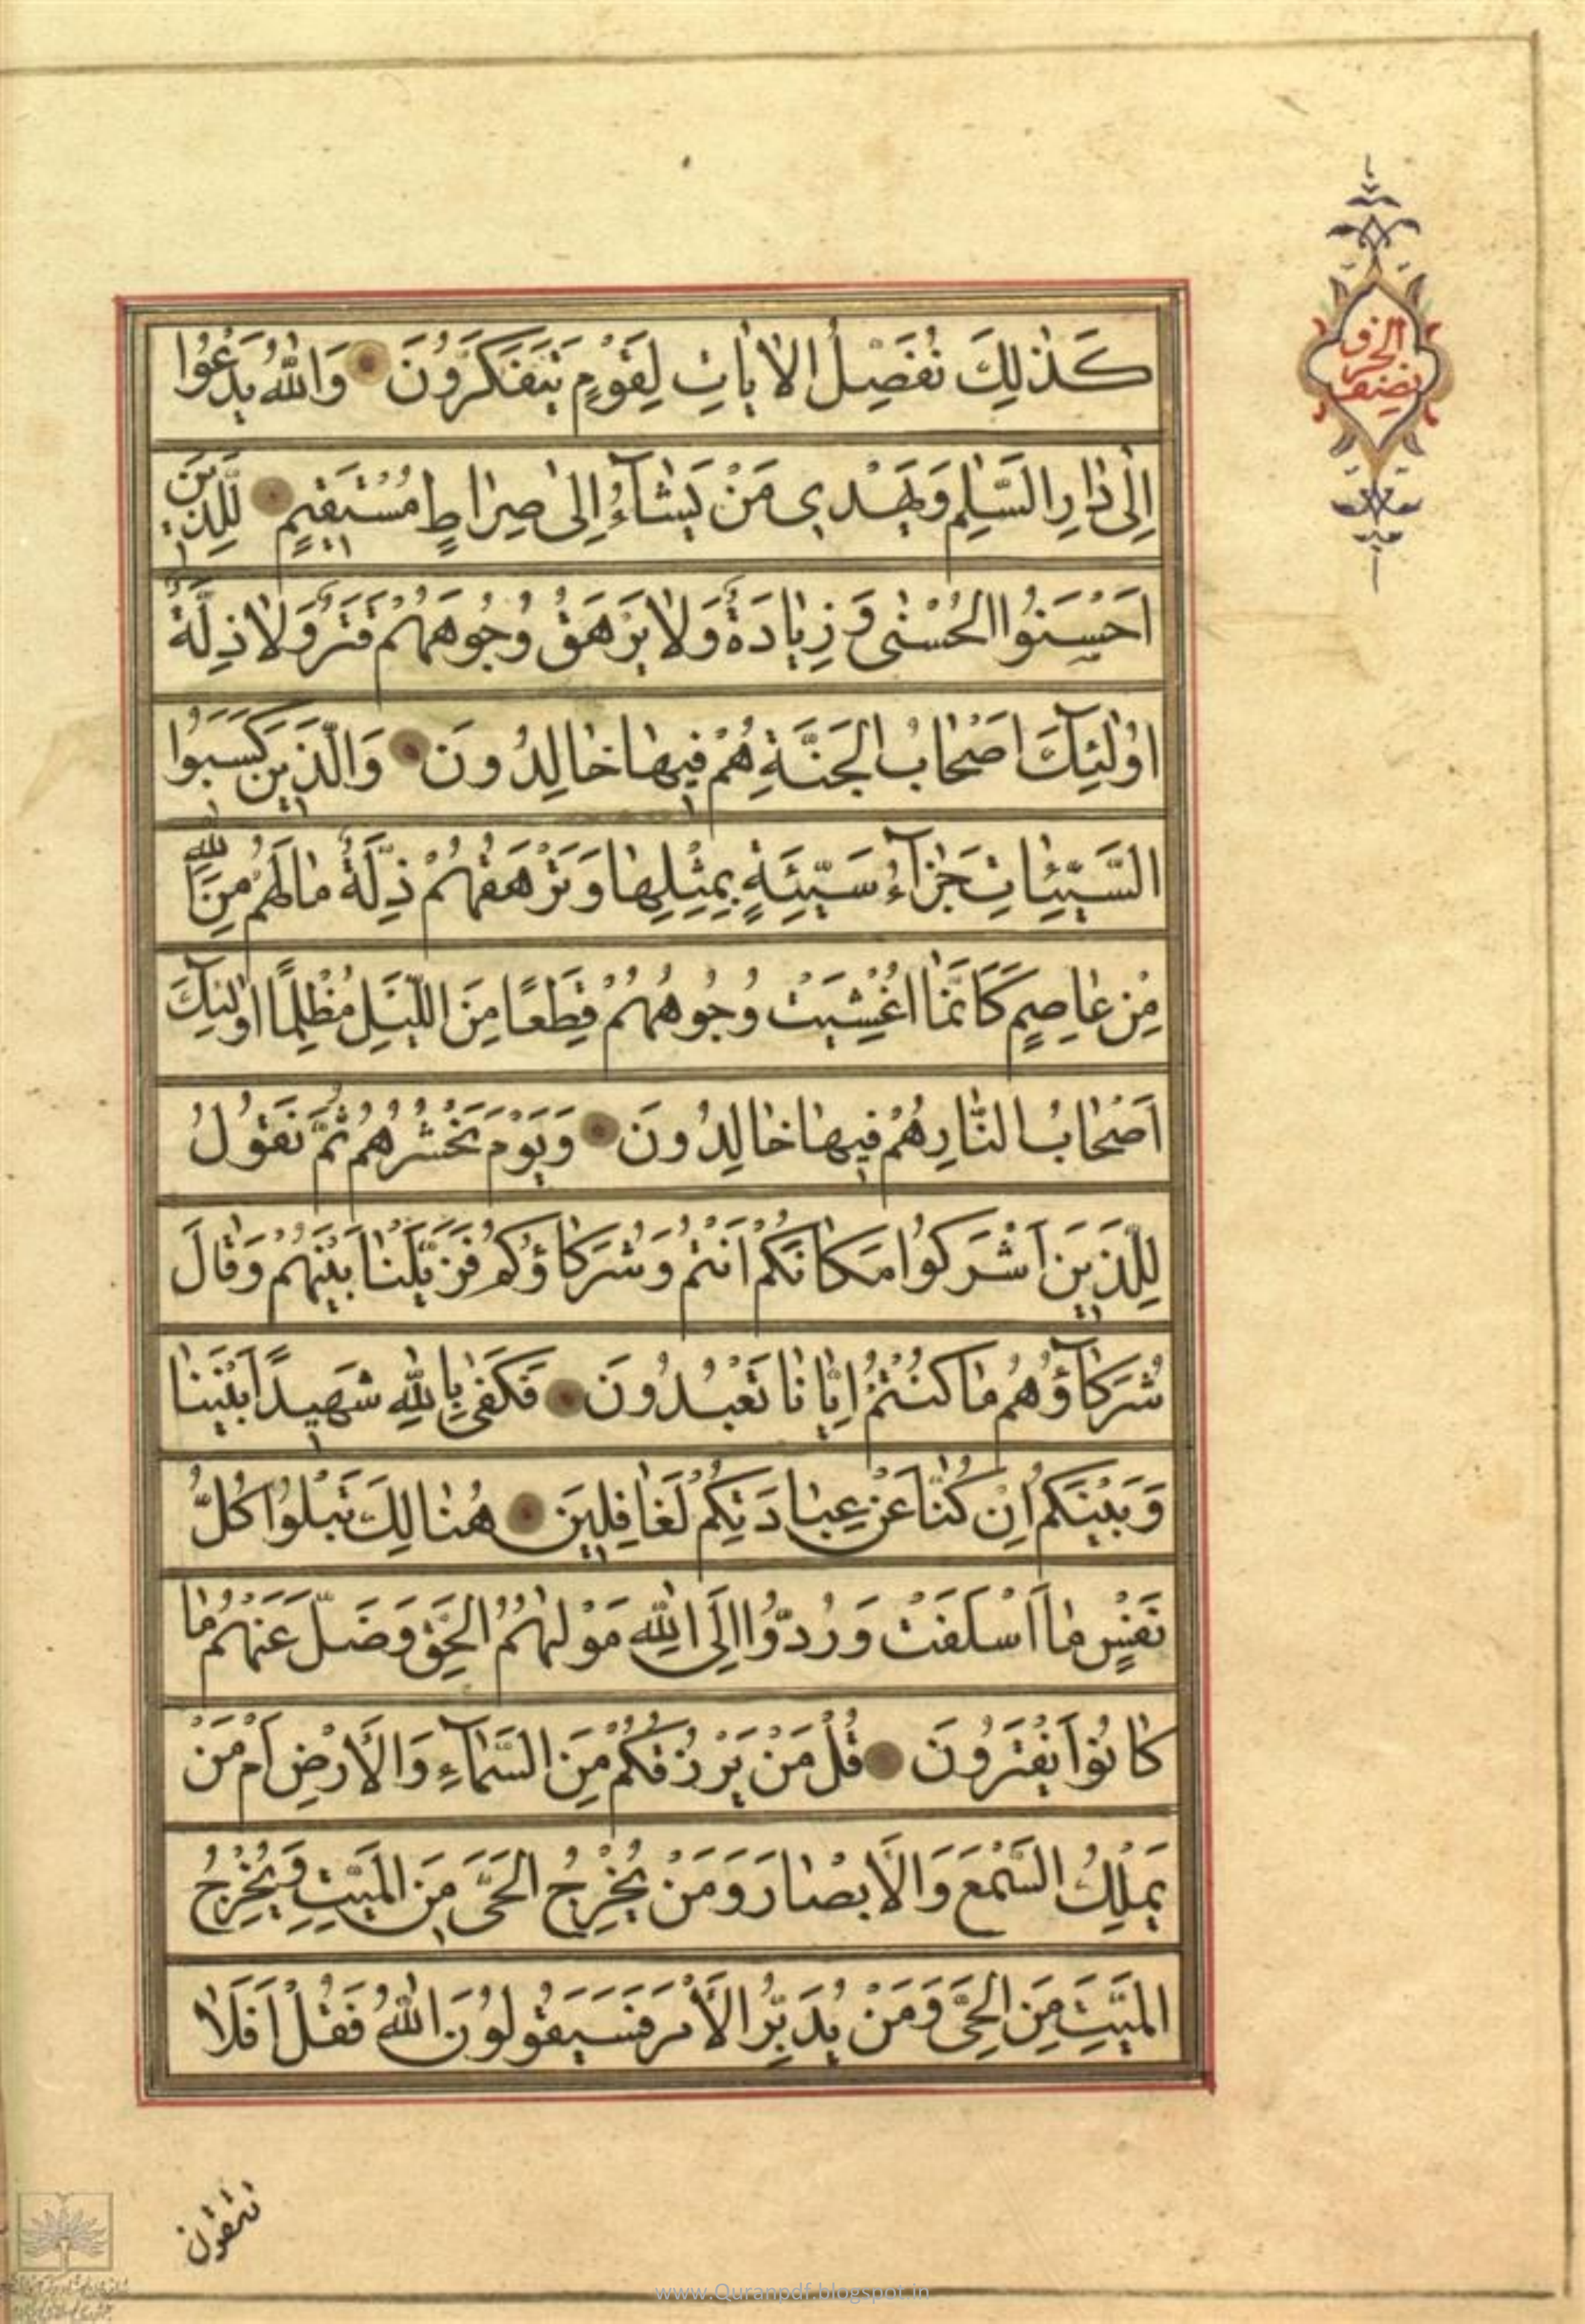 كَذٰلِكَ نُفَصِّلُ الاٰيٰاتِ لِقَوْمٍ يَتَفَكَّرُونَ وَاللّٰهُ يَدْعُوٓا
اِلٰى دٰارِ السَّلٰمِ وَيَهْدِى مَنْ يَشٰآءُ اِلىٰ صِرٰاطٍ مُسْتَقِيمٍ لِلَّذِينَ
اَحْسَنُوا الْحُسْنٰى وَ زِيٰادَةٌ وَلٰا يَرْهَقُ وُجُوهَهُمْ قَتَرٌ وَلٰا ذِلَّةٌ
اُولٰٓئِكَ اَصْحٰابُ الْجَنَّةِ هُمْ فِيهٰا خٰالِدُونَ وَالَّذِينَ كَسَبُوا
السَّيِّئٰاتِ جَزٰآءُ سَيِّئَةٍ بِمِثْلِهٰا وَتَرْهَقُهُمْ ذِلَّةٌ مٰا لَهُمْ مِنَ اللّٰهِ
مِنْ عٰاصِمٍ كَاَنَّمٰا اُغْشِيَتْ وُجُوهُهُمْ قِطَعًا مِنَ اللَّيْلِ مُظْلِمًا اُولٰٓئِكَ
اَصْحٰابُ النّٰارِ هُمْ فِيهٰا خٰالِدُونَ وَيَوْمَ نَحْشُرُهُمْ ثُمَّ نَقُولُ
لِلَّذِينَ اَشْرَكُوا مَكٰانَكُمْ اَنْتُمْ وَشُرَكٰاؤُكُمْ فَزَيَّلْنٰا بَيْنَهُمْ وَقٰالَ
شُرَكٰآؤُهُمْ مٰا كُنْتُمْ اِيّٰانٰا تَعْبُدُونَ فَكَفىٰ بِاللّٰهِ شَهِيدًا بَيْنَنٰا
وَبَيْنَكُمْ اِنْ كُنّٰا عَنْ عِبٰادَتِكُمْ لَغٰافِلِينَ هُنٰالِكَ تَبْلُوا كُلُّ
نَفْسٍ مٰا اَسْلَفَتْ وَرُدُّوا اِلَى اللّٰهِ مَوْلٰهُمُ الْحَقِّ وَضَلَّ عَنْهُمْ مٰا
كٰانُوا يَفْتَرُونَ قُلْ مَنْ يَرْزُقُكُمْ مِنَ السَّمٰآءِ وَالْاَرْضِ اَمْ مَنْ
يَمْلِكُ السَّمْعَ وَالْاَبْصٰارَ وَمَنْ يُخْرِجُ الْحَىَّ مِنَ الْمَيِّتِ وَيُخْرِجُ
الْمَيِّتَ مِنَ الْحَىِّ وَمَنْ يُدَبِّرُ الْاَمْرَ فَسَيَقُولُونَ اللّٰهُ فَقُلْ اَفَلٰا
تتقون
الحزب
نصف
www.Quranpdf.blogspot.in